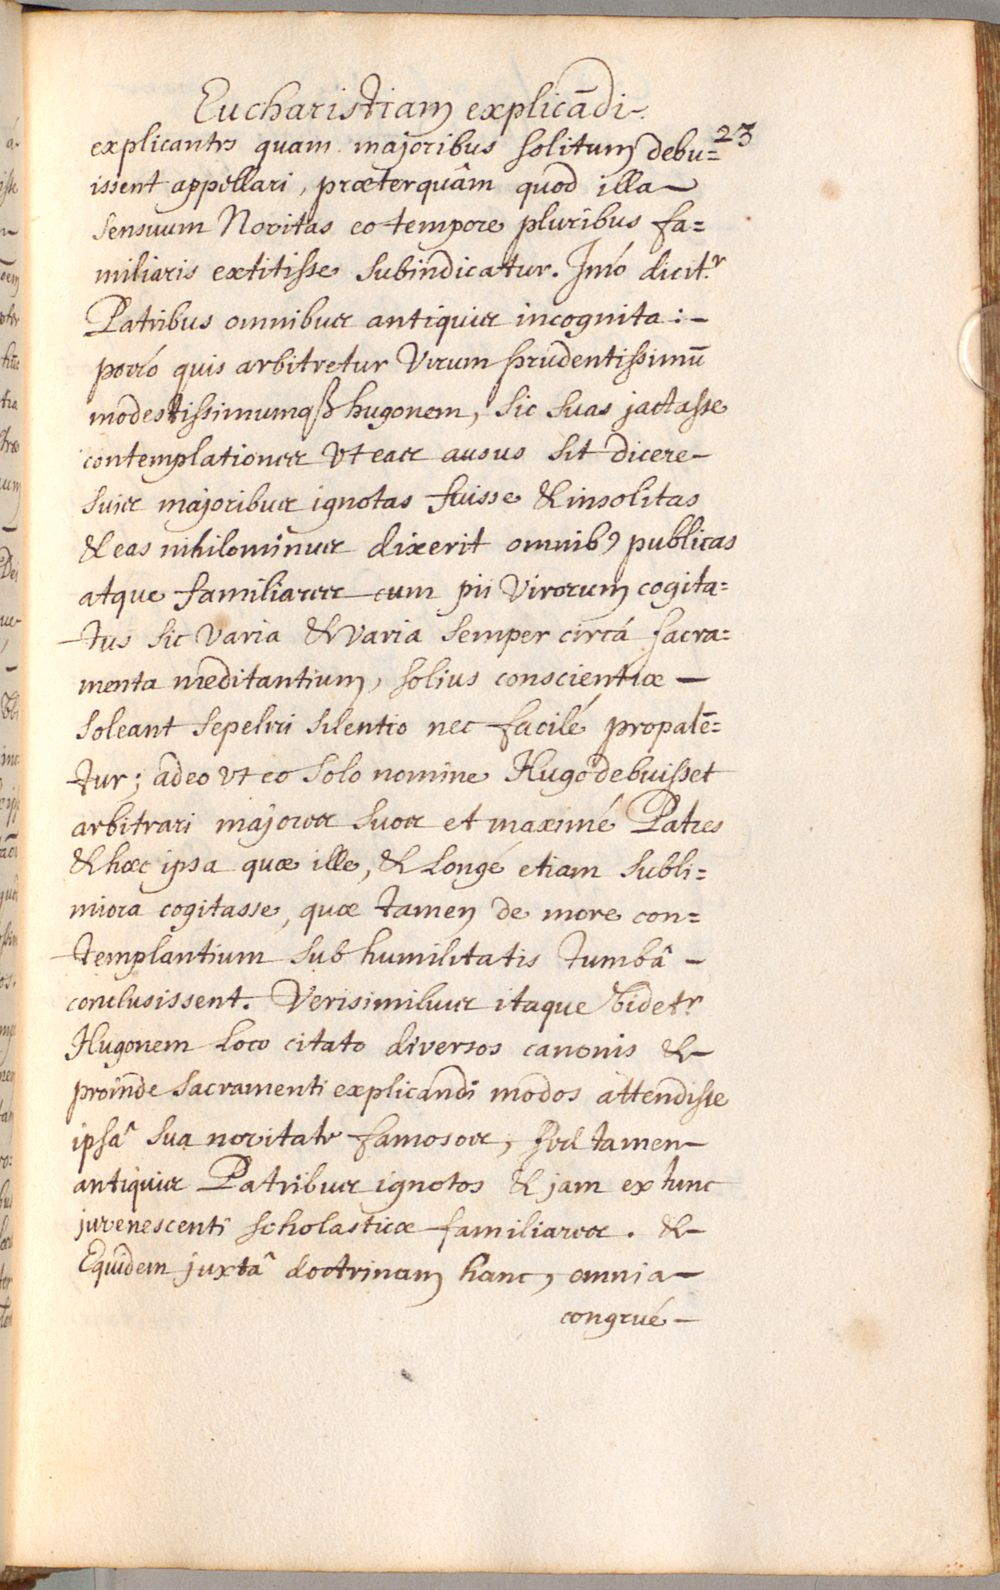 Eucharistiam explicādi
23
explicantis quam majoribus solitum debu=
issent appellari, præterquâm quod illa
sensuum Novitas eo tempore pluribus fa=
miliaris extitisse subindicatur. Imó dicit.r
Patribus omnibus antiquis incognita:
porró quis arbitretur Virum prudentissimū
modestissimumqȝ hugonem, sic suas jactasse
contemplationes Vt eas ausus sit dicere
suis majoribus ignotas fuisse & insolitas
& eas nihilominus dixerit omnibꝰ publicas
atque familiares cum pii Virorum cogita=
tus sic varia & varia semper circá sacra=
menta meditantium, solius conscientiæ
soleant sepeliri silentio nec facilé propalē=
tur; adeo vt eo solo nomine Hugo debuisset
arbitrari majores suos et maximé Patres
& hæc ipsa quæ ille, & Longé etiam subli=
miora cogitasse, quæ tamen de more con=
templantium sub humilitatis tumbâ
conclusissent. Verisimilius itaque Videt.r
Hugonem Loco citato diversos canonis &
proinde sacramenti explicandi modos attendisse
ipsâ sua novitate famosos, sed tamen
antiquis Patribus ignotos & jam ex tunc
juvenescenti scholasticæ familiares. &
Equidem juxtâ doctrinam hanc, omnia
congrué